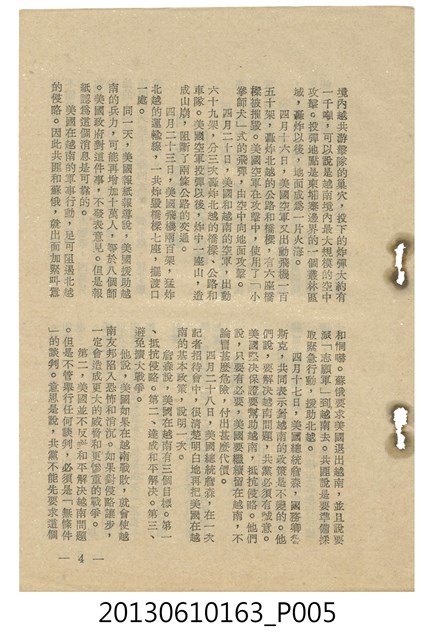 境內越共游擊隊的巢穴，投下的炸彈大約有
一千噸，可以說是越南境內最大規模的空中
攻擊。投彈地點是柬埔寨邊界的一個叢林區
域，轟炸以後，地面成爲一片火海。
四月十六日，美國空軍又出動飛機一百
五十架，轟炸北越的公路和橋樑，有六座橋
樑被摧毀。美國空軍在攻擊中，使用了「小
拳師犬」式的飛彈，由空中向地面攻擊。
四月二十日，美國和越南的空軍，出動
六十九架，分三次轟炸北越的橋樑、公路和
車隊。美國空軍投彈以後，炸中一座山，造
成山崩，阻斷了兩條公路的交通。
四月二十三日，美國飛機兩百架，猛炸
北越的運輸線，一共炸毀橋樑七座，擺渡口
一處。
同一天，美國報紙報導說，美國援助越
南的兵力，可能再增加十萬人，等於八個師
。美國政府對這件事，不發表意見。但是報
紙認爲這個消息是可靠的。
美國在越南的軍事行動，足可阻遏北越
的侵略。因此共匪和蘇俄，就出面加緊叫囂
和恫嚇。蘇俄要求美國退出越南，並且說要
派「志願軍」到越南去。共匪說是要準備採
取緊急行動，援助北越。
四月十七日，美國總統詹森，國務卿魯
斯克，共同表示對越南的政策是不變的。他
們說，要解決越南問題，共黨必須有誠意。
美國堅決保證要幫助越南，抵抗侵略。他們
說，只要有必要，美國要繼續留在越南，不
論冒甚麽危險，付出甚麽代價。
四月二十八日，美國總統詹森，在一次
記者招待會中，很清楚明白地再把美國在越
南的基本政策，說明一次。
詹森說，美國在越南有三個目標。第一
、抵抗侵略。第二、達成和平解決。第三、
避免擴大戰爭。
他說，美國如果在越南戰敗，就會使越
南友邦陷入恐怖和消沉。如果對侵略讓步，
一定會造成更大的威脅和更慘重的戰爭。
第二，美國並不反對和平解決越南問題
。但是不管舉行任何談判，必須是「無條件
」的談判。意思是說，共黨不能先要求這個
— 4 —
20130610163_P005